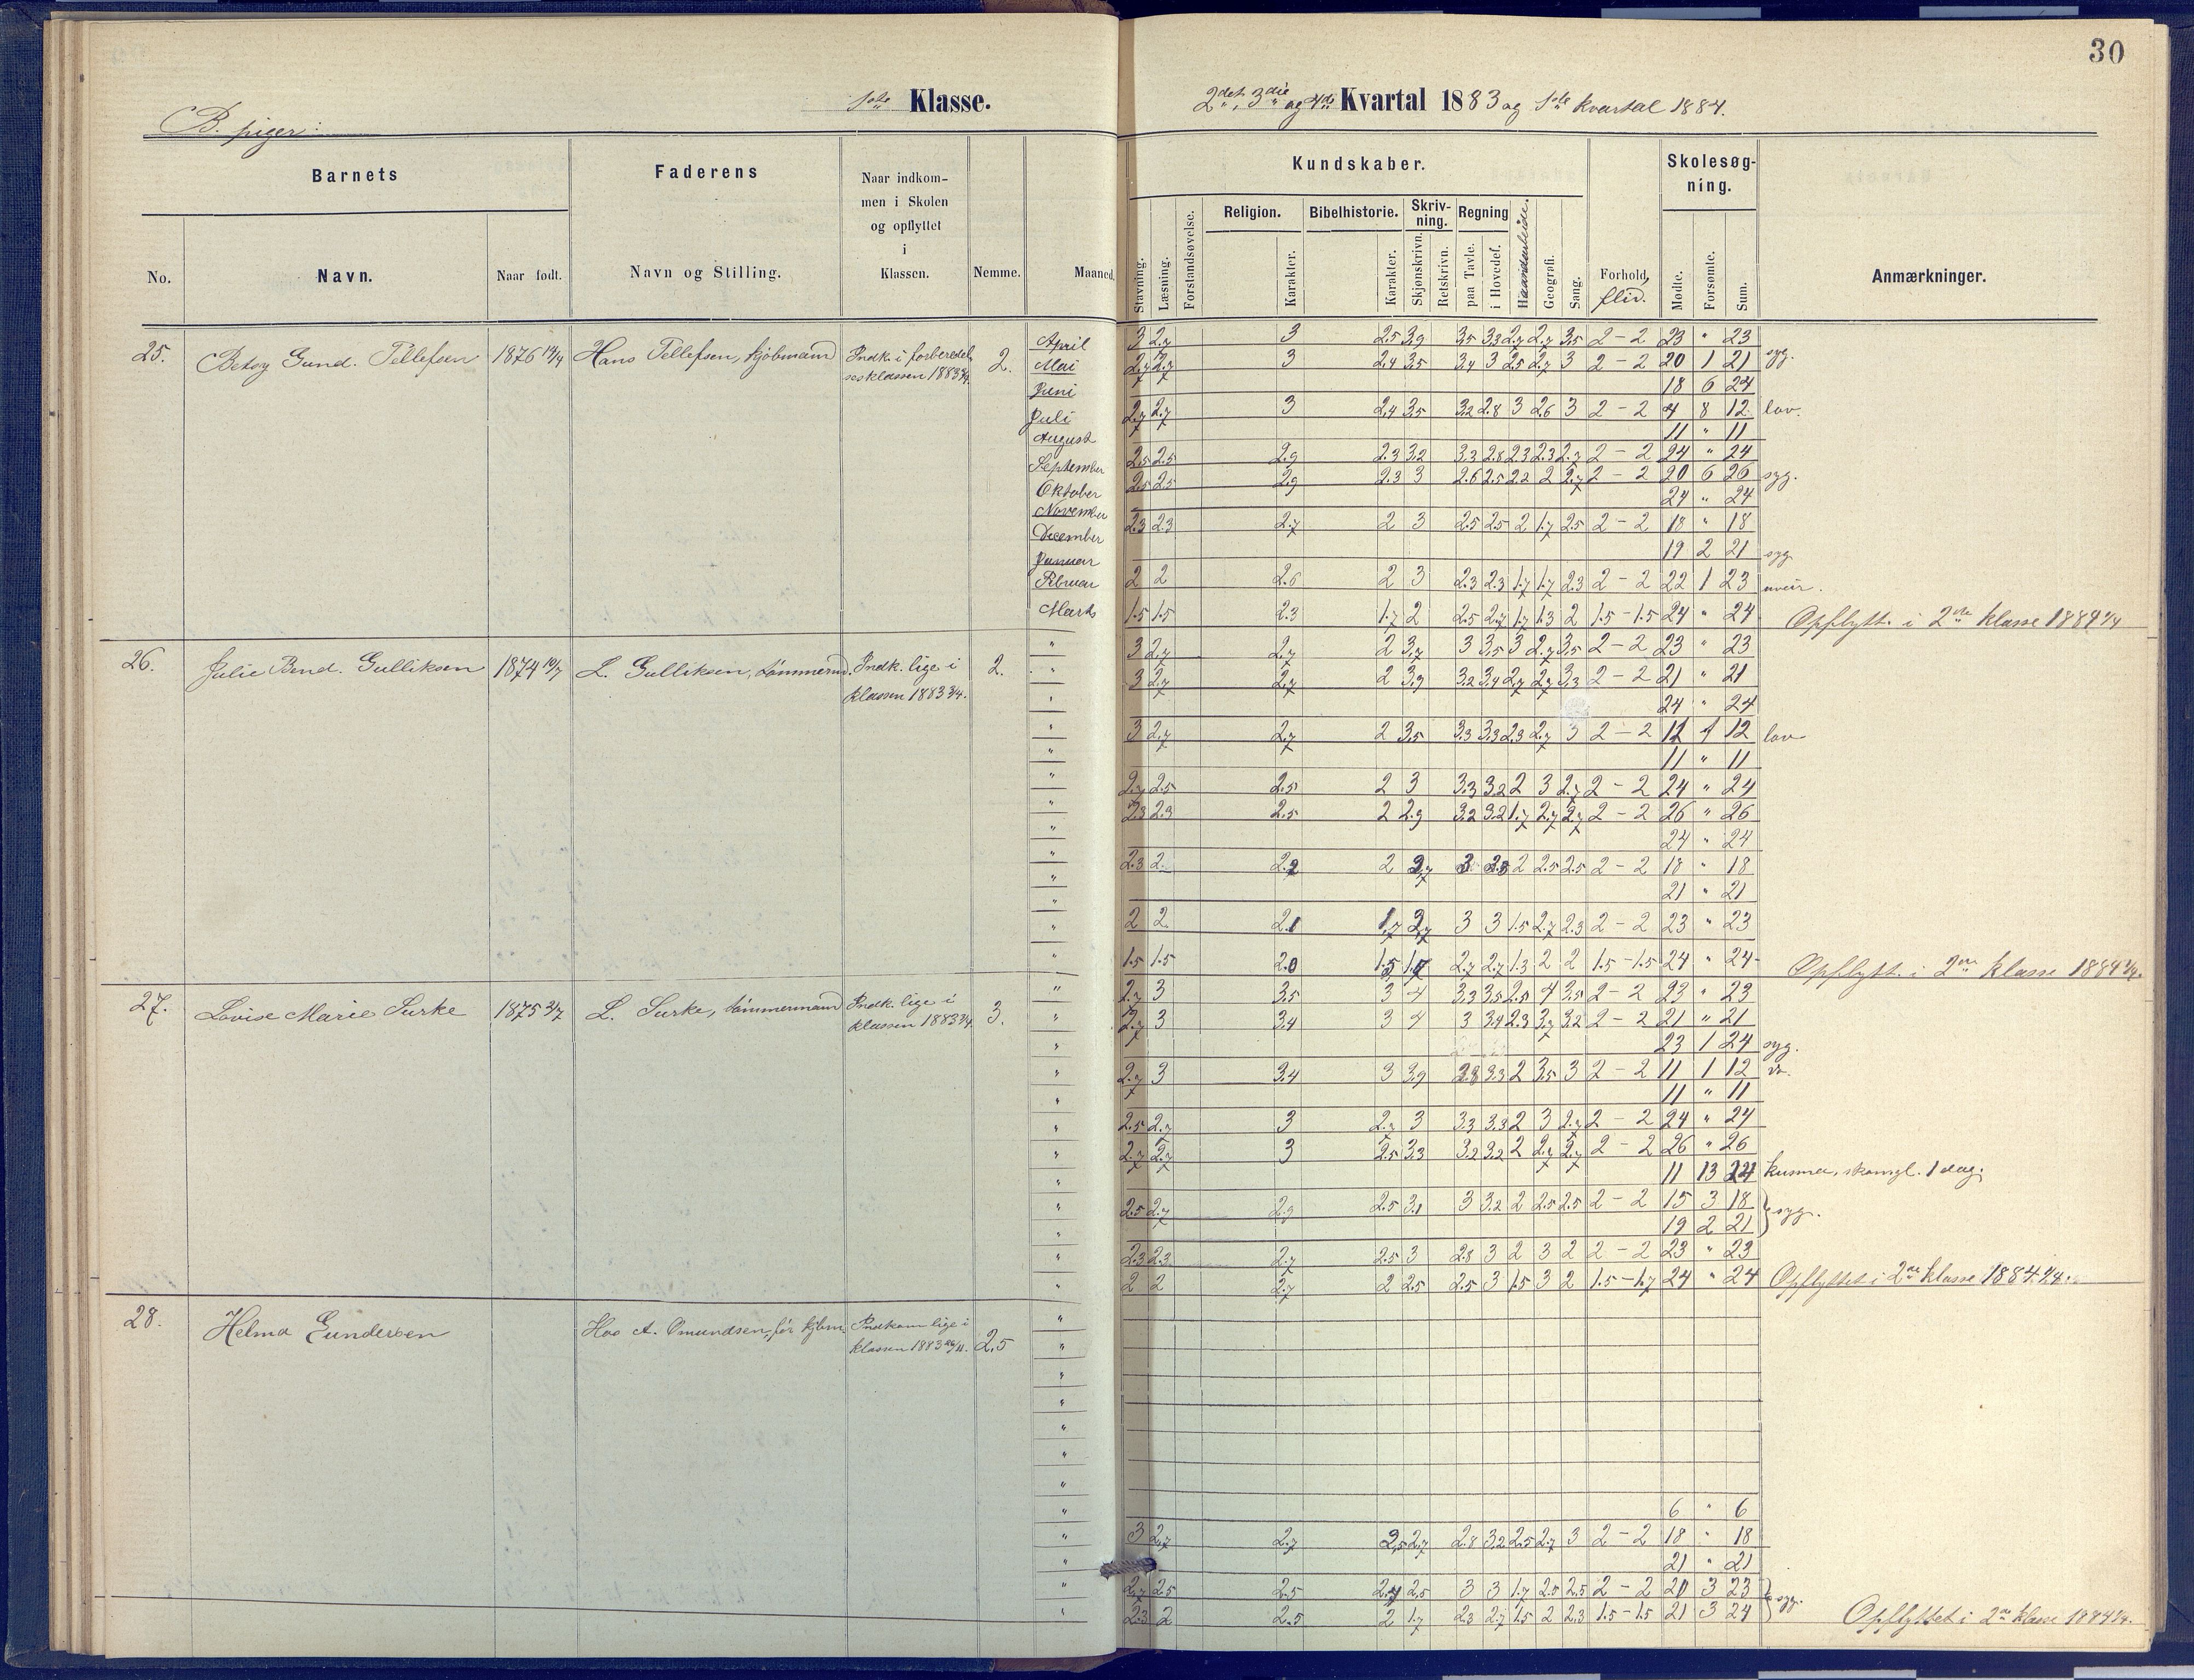 30
1ste Klasse.
2det, 3die og 4de Kvartal 1883 og 1ste Kvartal 1884.
B. piger:
Barnets
Faderens
Naar indkom-
men i Skolen
og opflyttet
i
Klassen.
Nemme.
Maaned.
No.
Navn.
Naar født.
Navn og Stilling.
Kundskaber.
Skolesøg-
ning.
Stavning.
Læsning.
Forstandsøvelse.
Religion.
Karakter.
Bibelhistorie.
Karakter.
Skriv-
ning.
Skjønskrivn.
Retskrivn.
Regning
paa Tavle.
i Hovedet.
Haandarbeide.
Geografi.
Sang.
Forhold,
flid.
Mødte.
Forsømte.
Sum.
Anmærkninger.
25.
Betsy Gund. Tellefsen
1876 14/4
Hans Tellefsen, kjøbmand
Indk. i forberedel-
sesklassen 1883 3/4.
2.
April 3 2.7 3 2.5 3.9 3.5 3.3 2.7 2.7 3.5 2 - 2 23 " 23
Mai 2.7 2.7 3 2.4 3.5 3.4 3 2.5 2.7 3 2 - 2 20 1 21 syg.
Juni 18 6 24
Juli 2.7 2.7 3 2.4 3.5 3.2 2.8 3 2.6 3 2 - 2 4 8 12 lov.
August 11 " 11
September 2.5 2.5 2.9 2.3 3.2 3.3 2.8 2.3 2.3 2.7 2 - 2 24 " 24
Oktober 2.5 2.5 2.9 2.3 3 2.6 2.5 2.2 2 2.7 2 - 2 20 6 26 syg.
November 24 " 24
December 2.3 2.3 2.7 2 3 2.5 2.5 2 1.7 2.5 2 - 2 18 " 18
Januar 19 2 21 syg
Februar 2 2 2.6 2 3 2.3 2.3 1.7 1.7 2.3 2 - 2 22 1 23 uveir.
Marts 1.5 1.5 2.3 1.7 2 2.5 2.7 1.7 1.3 2 1.5 - 1.5 24 " 24 Opflytt. i 2den klasse 1884 1/4
26.
Julie Bend. Gulliksen
1874 10/7
L. Gulliksen, tømmerm.
Indk. lige i
klassen 1883 3/4.
2.
" 3 2.7 2.7 2 3.7 3 3.5 3 2.7 3.5 2 - 2 23 " 23
" 3 2.7 2.7 2 3.9 3.2 3.4 2.7 2.7 3.3 2 - 2 21 " 21
" 24 " 24
" 3 2.7 2.7 2 3.5 3.3 3.3 2.3 2.7 3 2 - 2 11 1 12 lov
" 11 " 11
" 2.7 2.5 2.5 2 3 3.3 3.2 2 3 2.7 2 - 2 24 " 24
" 2.3 2.3 2.5 2 2.9 3.2 3.2 1.7 2.7 2.7 2 - 2 26 " 26
" 24 " 24
" 2.3 2 2.2 2 2.7 3 2.8 2 2.5 2.5 2 - 2 18 " 18
" 21 " 21
" 2 2 2.1 1.7 2.7 3 3 1.5 2.7 2.3 2 - 2 23 " 23
" 1.5 1.5 2.0 1.5 1.7 2.7 2.7 1.3 2 2 1.5 - 1.5 24 " 24 Opflytt. i 2den klasse 1884 1/4.
27.
Lovise Marie Surke
1875 3/7
L. Surke, tømmermand
Indk. lige i
klassen 1883 3/4
3.
" 2.7 3 3.5 3 4 3.3 3.5 2.5 4 3.5 2 - 2 23 " 23
" 2.7 3 3.4 3 4 3 3.4 2.3 3.7 3.2 2 - 2 21 " 21
" 23 1 24 syg.
" 2.7 3 3.4 3 3.9 2.8 3.3 2 3.5 3 2 - 2 11 1 12
" 11 " 11
" 2.5 2.7 3 2.7 3 3.3 3.3 2 3 2.7 2 - 2 24 " 24
" 2.7 2.7 3 2.5 3.3 3.2 3.2 2 2.7 2.7 2 - 2 26 " 26
" 11 13 24 kusma, skomgl. 1 dag.
" 2.5 2.7 2.9 2.5 3.1 3 3.2 2 2.5 2.5 2 - 2 15 3 18 syg.
" 19 2 21
" 2.3 2.3 2.7 2.5 3 2.8 3 2 3 2 2 - 2 23 " 23
" 2 2 2.7 2 2.5 2.5 3 1.5 3 2 1.5 - 1.7 24 " 24 Opflyttet i 2den klasse 1884 1/4.
28.
Helma Gundersen
Hos A. Omundsen, før kjbm.
Indkom lige i
klassen 1883 26/11.
2.5
" 6 " 6
" 3 2.7 2.7 2.5 2.7 2.8 3.2 2.5 2.7 3 2 - 2 18 " 18
" 21 " 21
" 2.7 2.5 2.5 2.7 2.5 3 3 1.7 2.5 2.5 2 - 2 20 3 23 syg.
" 2.3 2 2.5 2 1.7 2.3 2.7 1.5 2 2.3 1.5 - 1.5 21 3 24 Opflyttet i 2den klasse 1884 1/4.